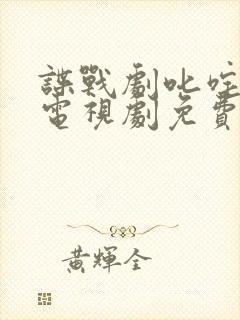 諜戰劇叱咤
電視劇免費
黃輝全